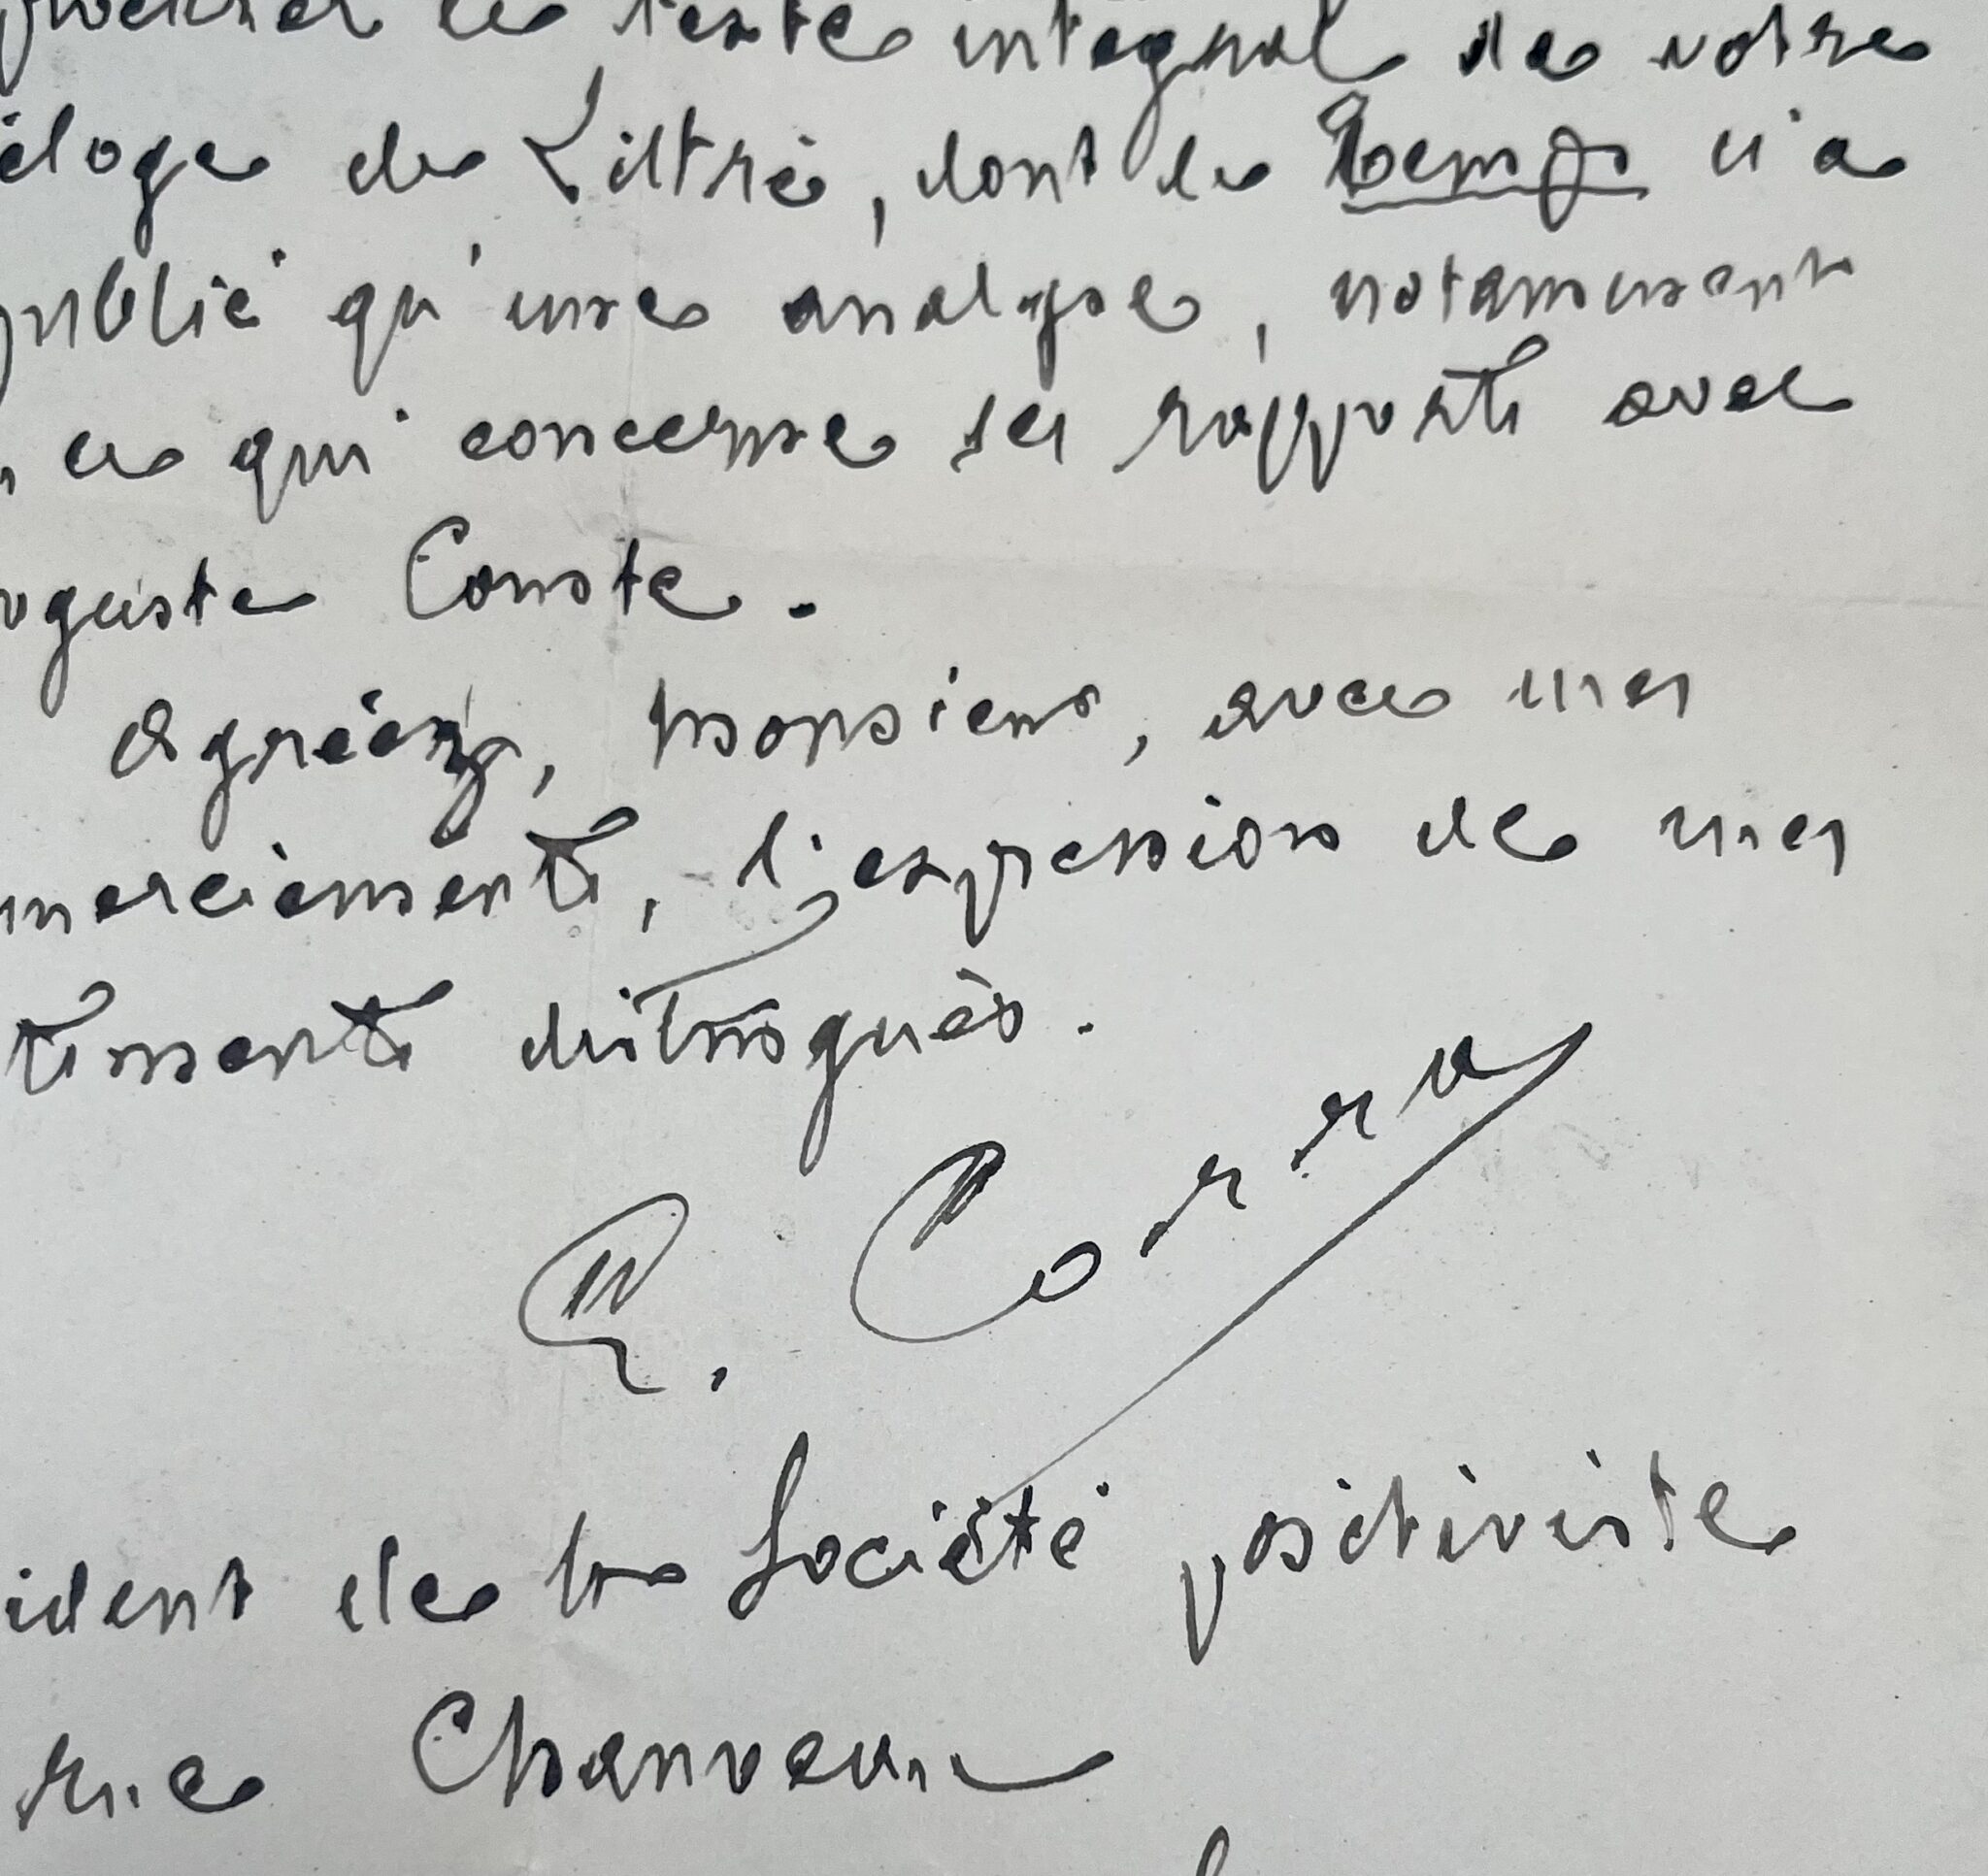 procurer le texte intégral de votre
éloge de Littré, dont le Temps n'a
publié qu'une analyse, notamment
n ce qui concerne ses rapports avec
uguste Comte.
Agréez, Monsieur, avec mes
merciements, l'expression de mes
timents distingués.
E. Corra
ident de la Société positiviste
rue Chanveau